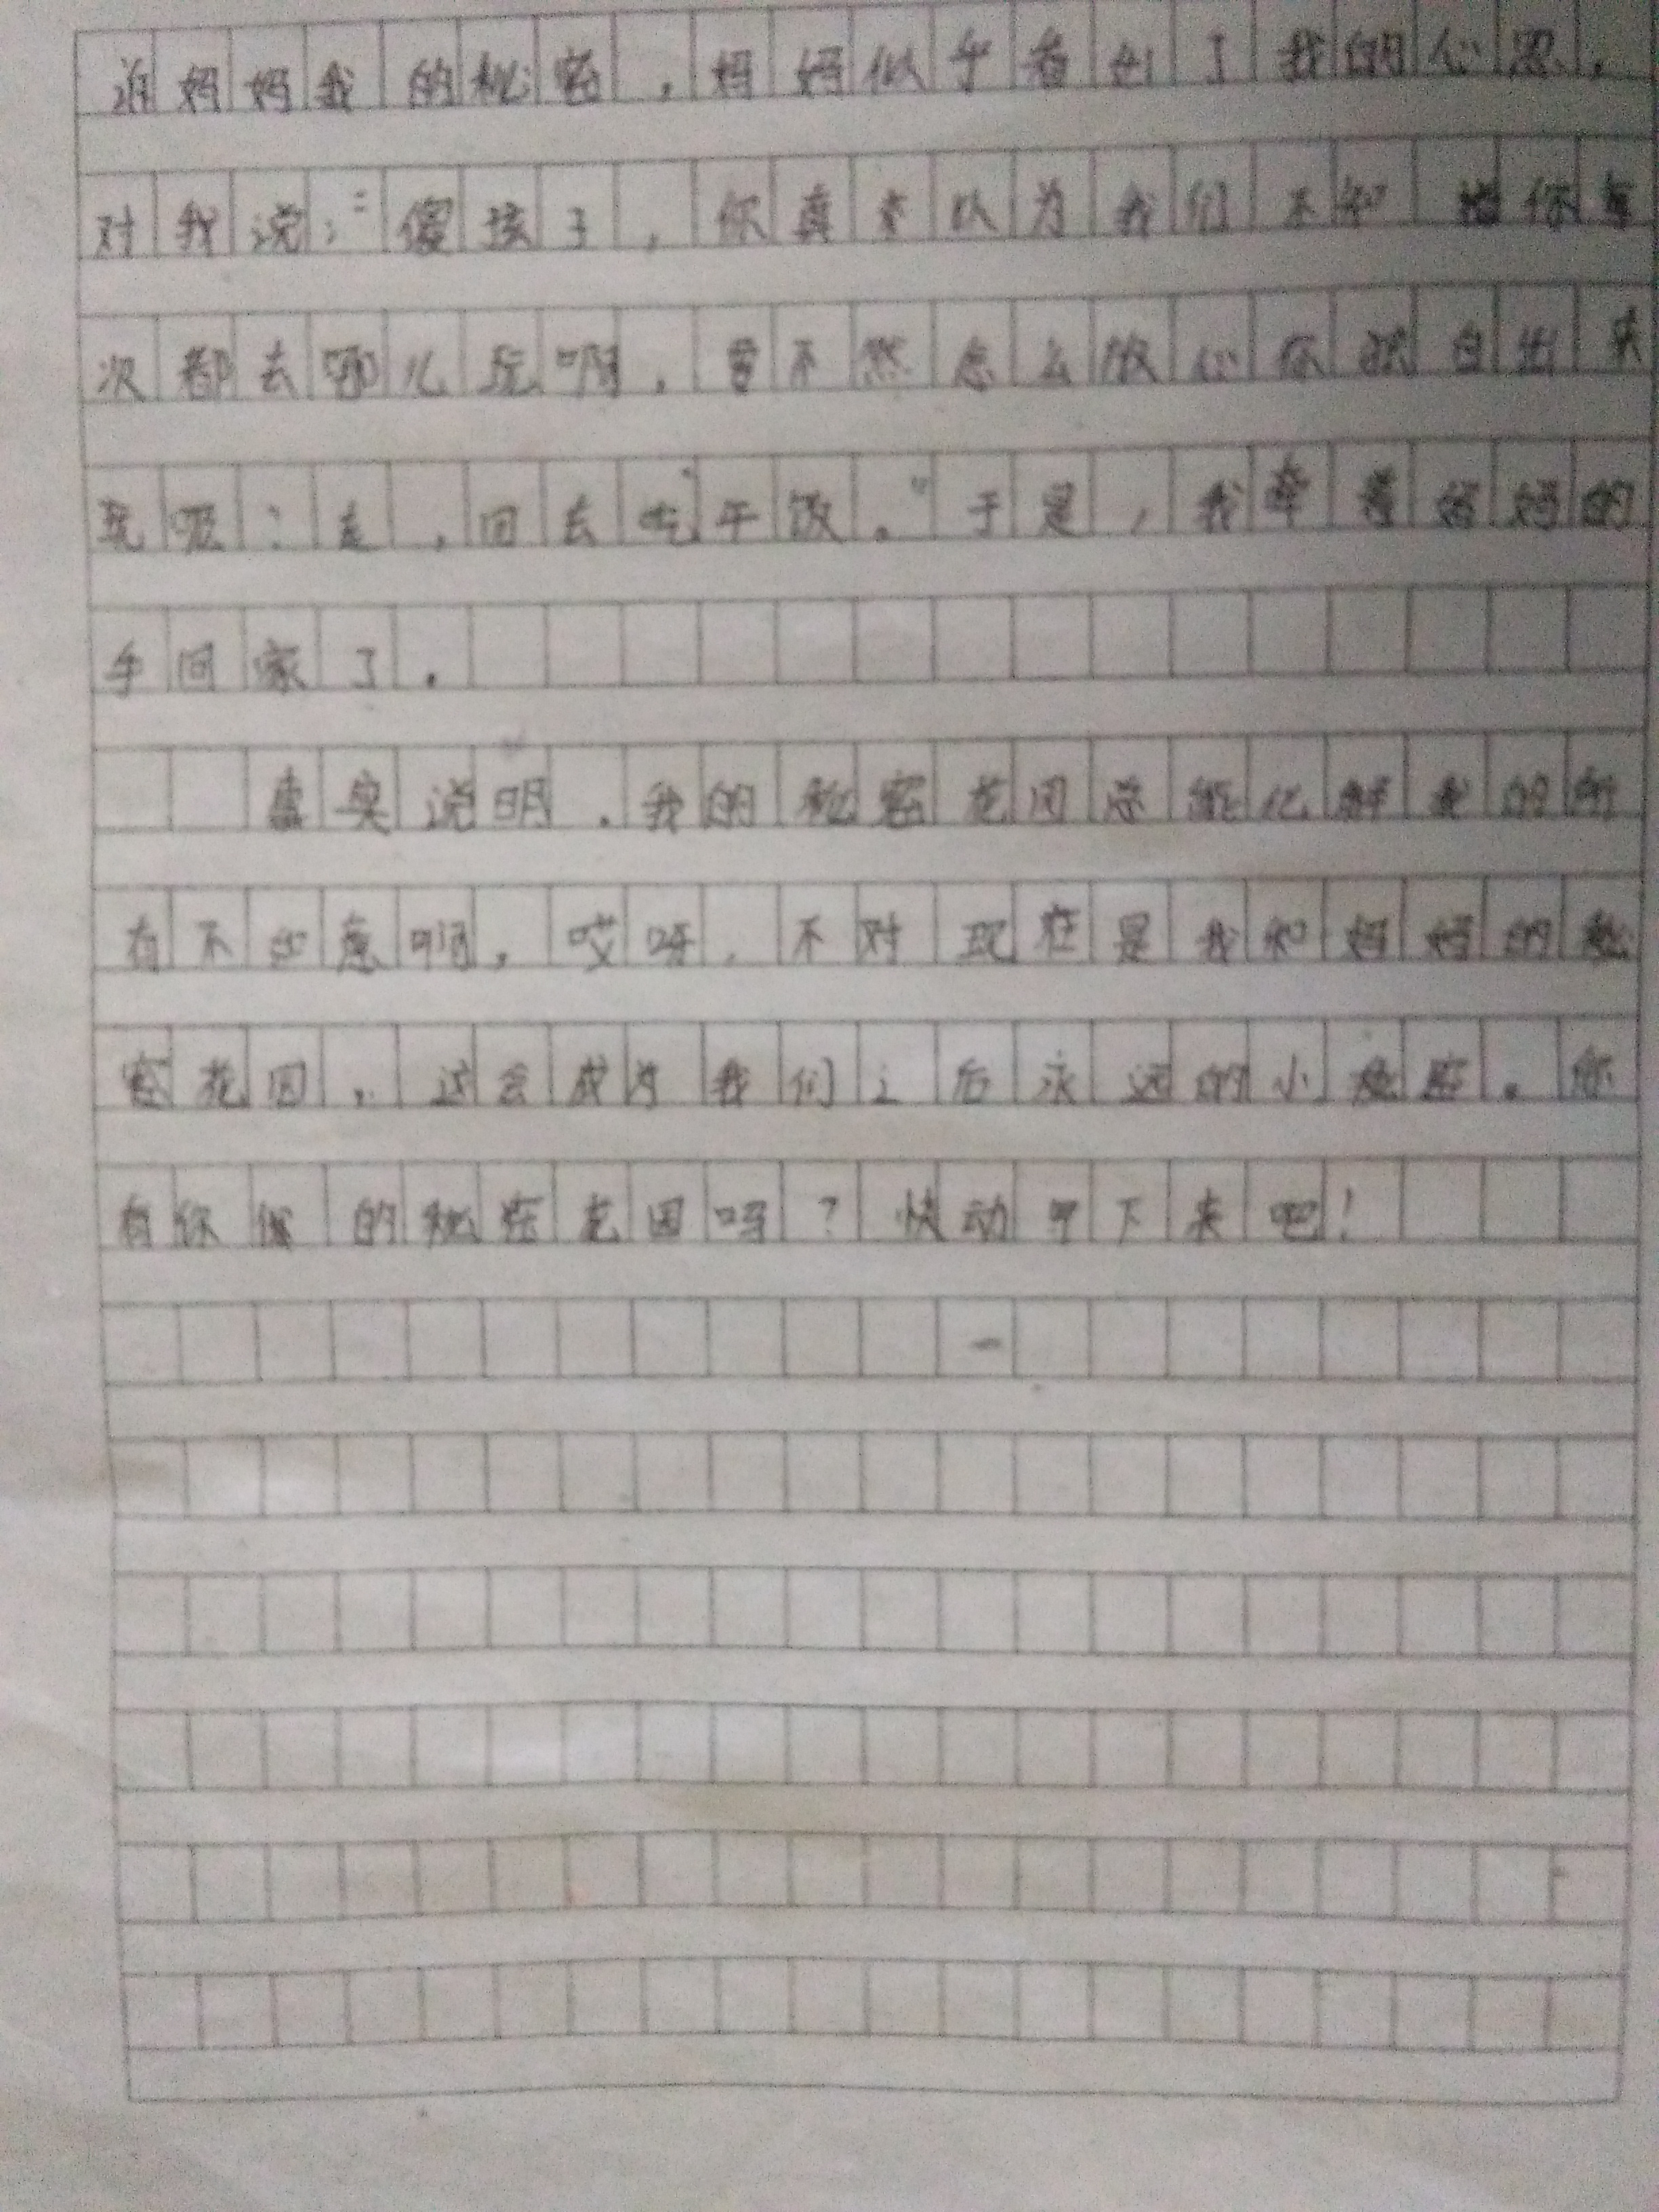 妈妈我的秘密，妈妈似乎看出了我的心思，
对我说：“傻孩子，你真以为我们不知 你每
次都去哪儿玩啊，要不然怎么放心你独自出去
玩呢：走，回去吃午饭。”于是，我牵着妈妈的
手回家了。
事实说明，我的秘密花园总能化解我的所
有不如意啊，哎呀，不对现在是我和妈妈的秘
密花园，这会成为我们之后永远的小秘密。你
有你 的秘密花园吗？快动 下来吧！